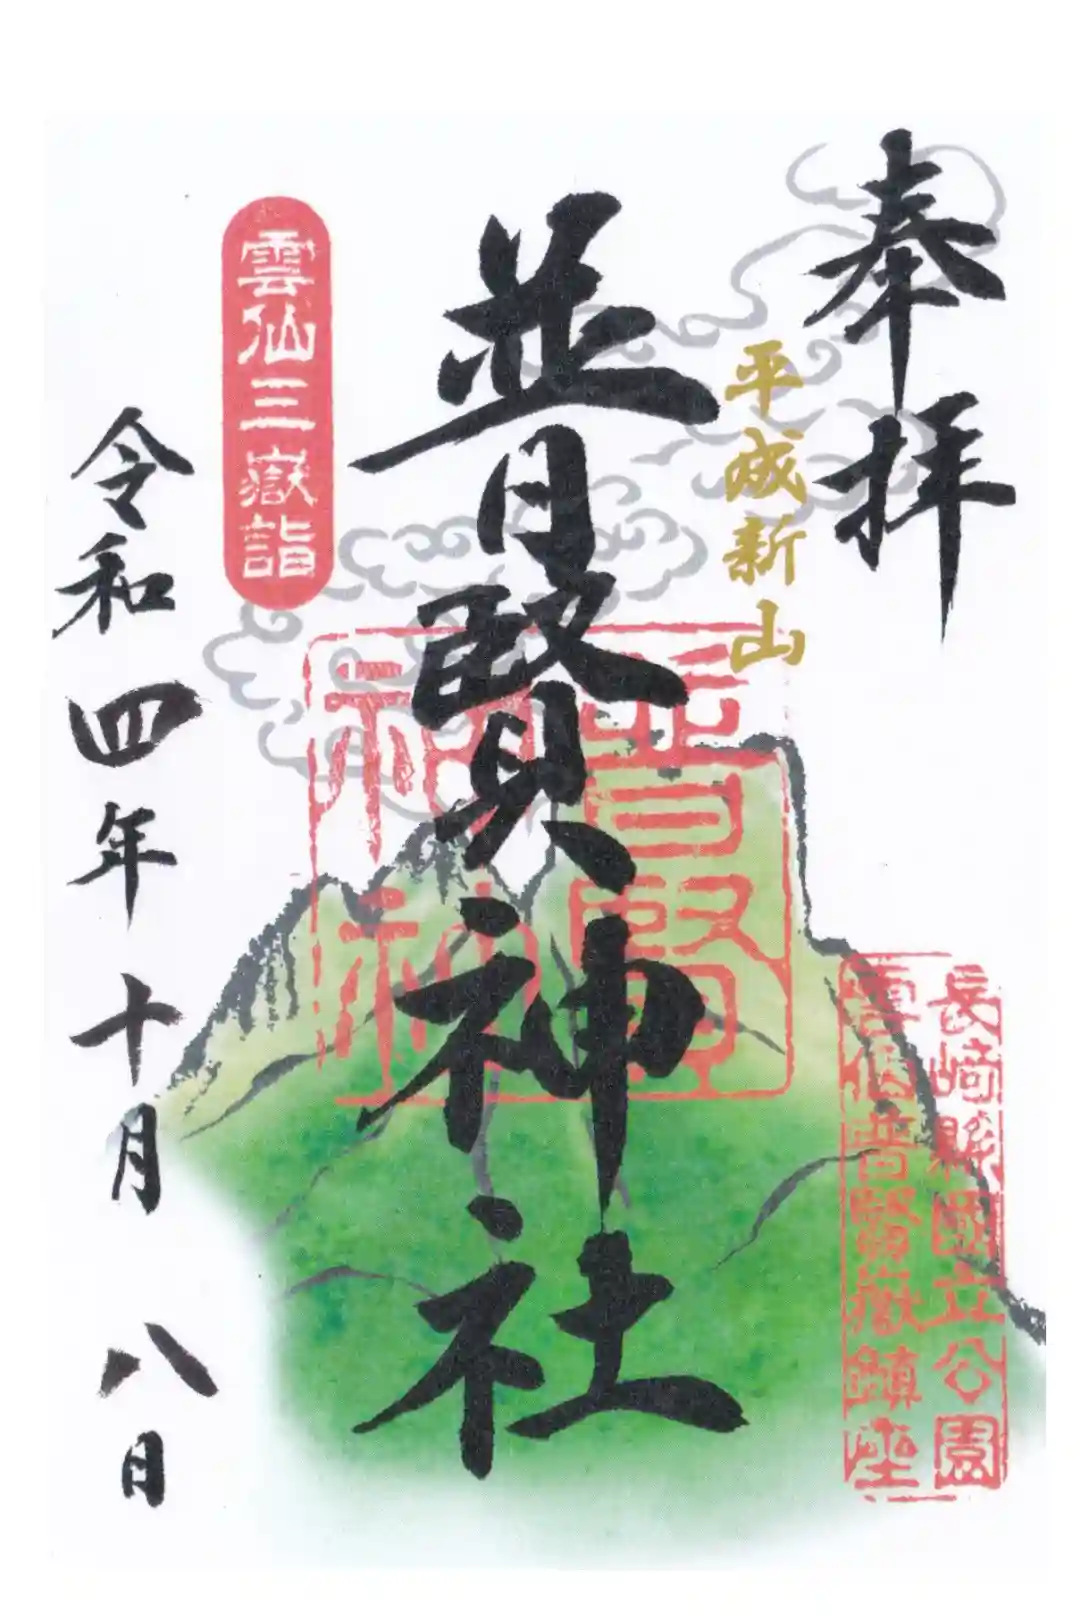 奉拝
平成新山
長崎縣國立公園
雲仙普賢嶽鎮座
普賢神社
普賢
神社
雲仙三嶽詣
令和四年十月八日